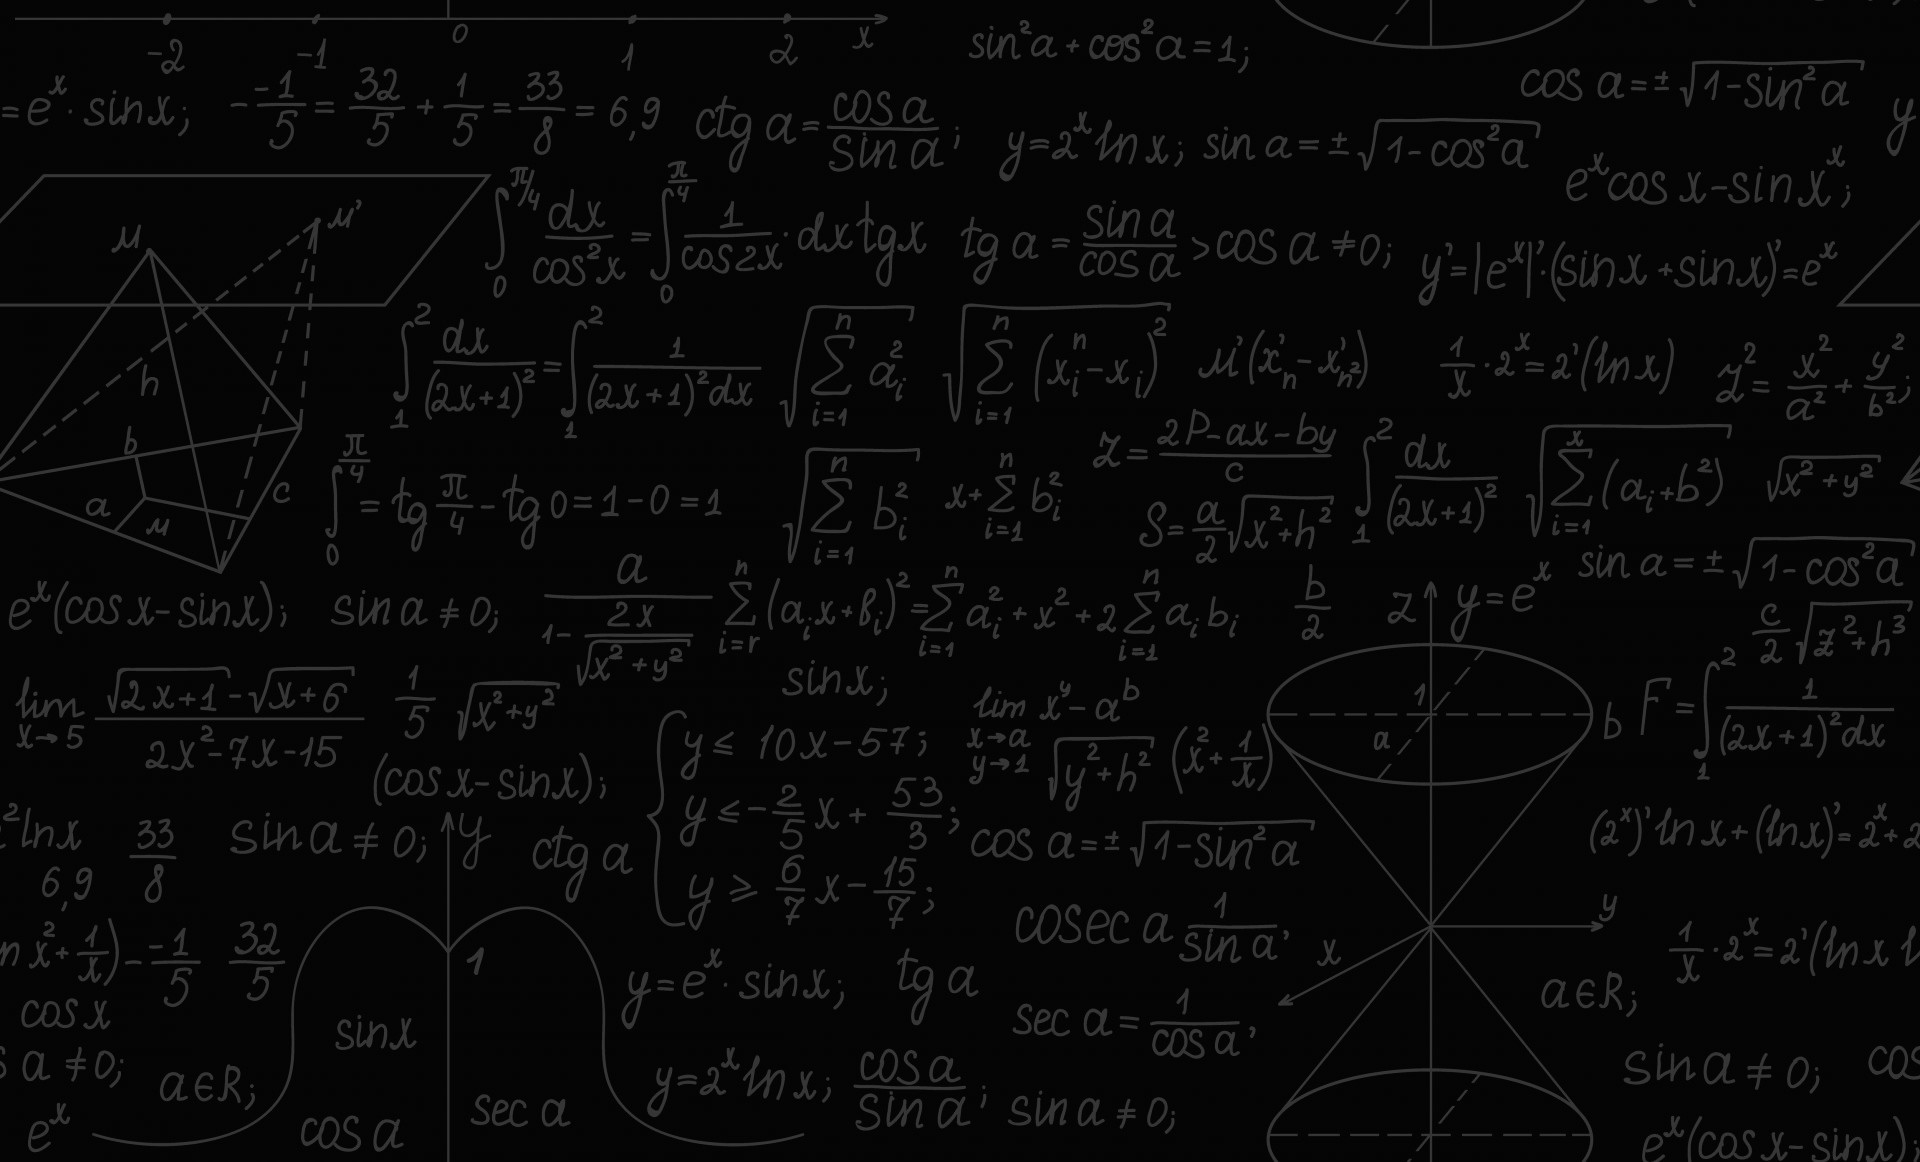 -2 -1 0 1 2 x
sin²a + cos²a = 1;
= eˣ · sin x; - -1/5 = 32/5 + 1/5 = 33/8 = 6,9
ctg a = cos a / sin a;
y = 2ˣ ln x; sin a = ± √(1 - cos²a)
cos a = ± √(1 - sin²a)
y
eˣ cos x - sin xˣ;
M M'
∫₀^(π/4) dx / cos²x = ∫₀^(π/4) 1 / cos2x · dx tg x
tg a = sin a / cos a > cos a ≠ 0;
y' = |eˣ|' · (sin x + sin x)' = eˣ
∫₁² dx / (2x+1)² = ∫₁² 1 / (2x+1)² dx
√(∑ᵢ₌₁ⁿ aᵢ²)
√(∑ᵢ₌₁ⁿ (xᵢⁿ - xᵢ)²)
M'(x'ₙ - x'ₙ²)
1/x · 2ˣ = 2'(ln x)
z² = x²/a² + y²/b²;
h b a M c
∫₀^(π/4) = tg π/4 - tg 0 = 1 - 0 = 1
√(∑ᵢ₌₁ⁿ bᵢ²)
x + ∑ᵢ₌₁ⁿ bᵢ²
z = (2P - ax - by) / c
S = a/2 √(x² + h²)
∫₁² dx / (2x+1)²
√(∑ᵢ₌₁ˣ (aᵢ + b²))
√(x² + y²)
sin a = ± √(1 - cos²a)
eˣ(cos x - sin x); sin a ≠ 0;
a / (1 - 2x / √(x² + y²))
∑ᵢ₌ᵣⁿ (aᵢx + bᵢ)² = ∑ᵢ₌₁ⁿ aᵢ² + x² + 2 ∑ᵢ₌₁ⁿ aᵢ bᵢ
b/2
z y = eˣ
c/2 √(z² + h³)
lim x→5 (√(2x+1) - √(x+6)) / (2x² - 7x - 15)
1/5 √(x² + y²)
sin x;
lim x→a y→1 xʸ - aᵇ
√(y² + h²) (x² + 1/x)
1 a b
F = ∫₁² 1 / (2x+1)² dx
(cos x - sin x);
{ y ≤ 10x - 57;
y ≤ - 2/5 x + 53/3;
y ≥ 6/7 x - 15/7;
² ln x 33/8 sin a ≠ 0; y ctg a
6,9
cos a = ± √(1 - sin²a)
(2ˣ)' ln x + (ln x)' = 2ˣ + 2
n x² + 1/x) - -1/5 32/5
1
cosec a 1 / sin a,
x y
1/x · 2ˣ = 2'(ln x l
y = eˣ · sin x; tg a
a ∈ R;
cos x
sin x
sec a = 1 / cos a,
s a ≠ 0; a ∈ R;
y = 2ˣ ln x; cos a / sin a; sin a ≠ 0;
sin a ≠ 0; cos
eˣ cos a sec a
eˣ(cos x - sin x);